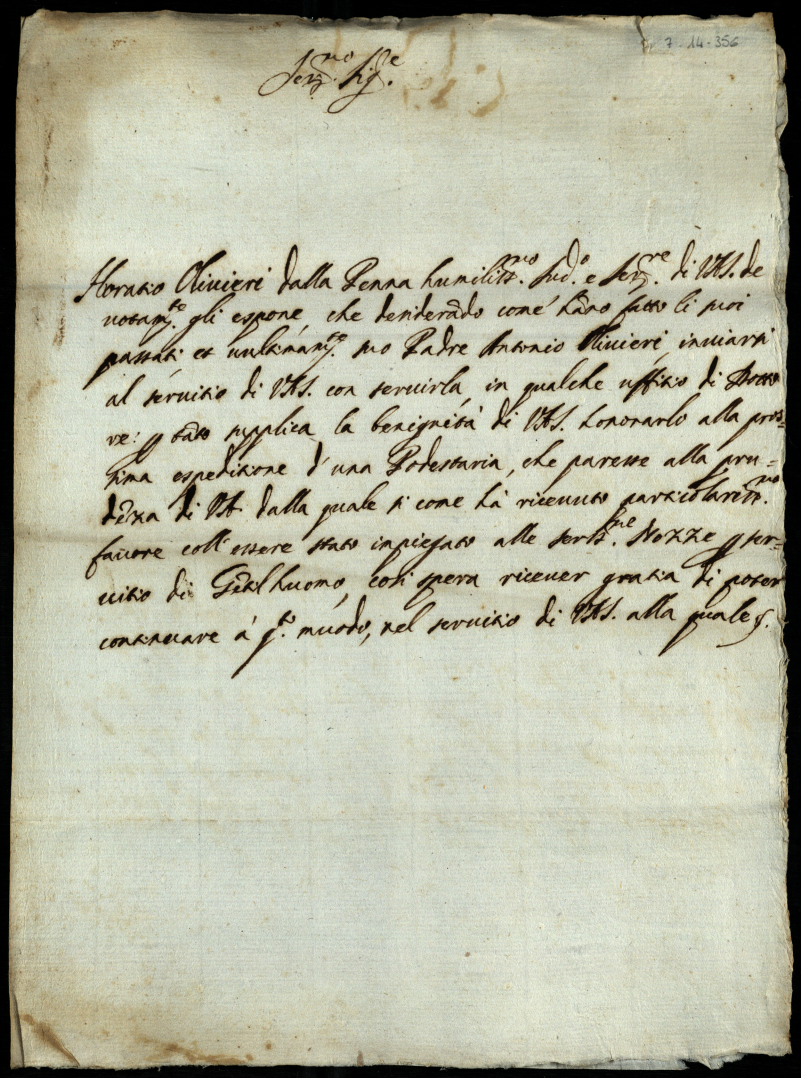 7-14-356
Ser.mo Sig.e
Horatio Olivieri dalla Penna humiliss.mo Sud.o e Ser.re di V.A.S. de
votam.te gli espone che desiderãdo come hãno fatto li suoi
passati et vultimam.te suo Padre Antonio Olivieri inviarsi
al servitio di V.A.S. con servirla in qualche uffitio di Dotto
re: p tãto supplica la benignità di V.A.S. honorarlo alla pros=
sima espeditione d'una Podestaria, che paresse alla pru=
dẽza di V.A. dalla quale si come hà ricevuto particolariss.mo
favore coll'essere stato impiegato alle sereiss.me Nozze p ser=
vitio di Gẽtilhuomo, così spera ricever gratia di poter
continuare à q.to muodo, nel servitio di V.A.S. alla quale